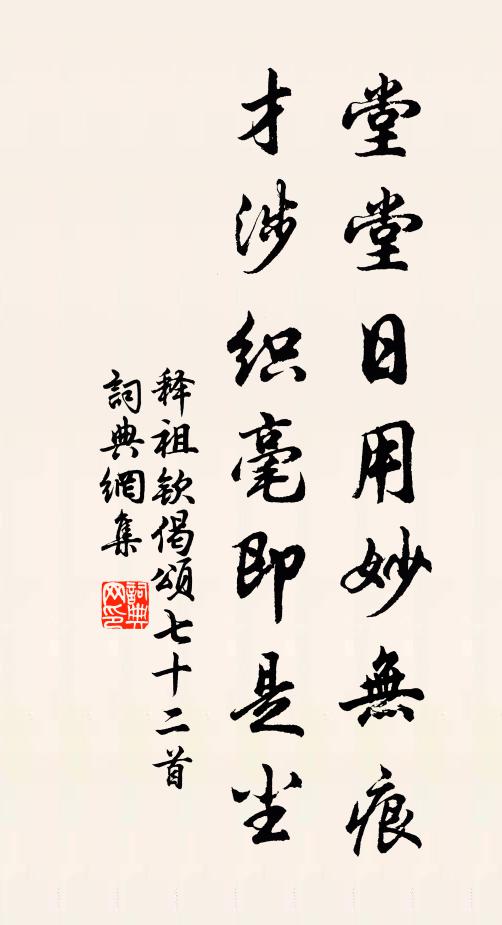 堂堂日用妙無痕
才涉织毫即是尘
释祖钦偈頌七十二首
詞典網集
詞典网印